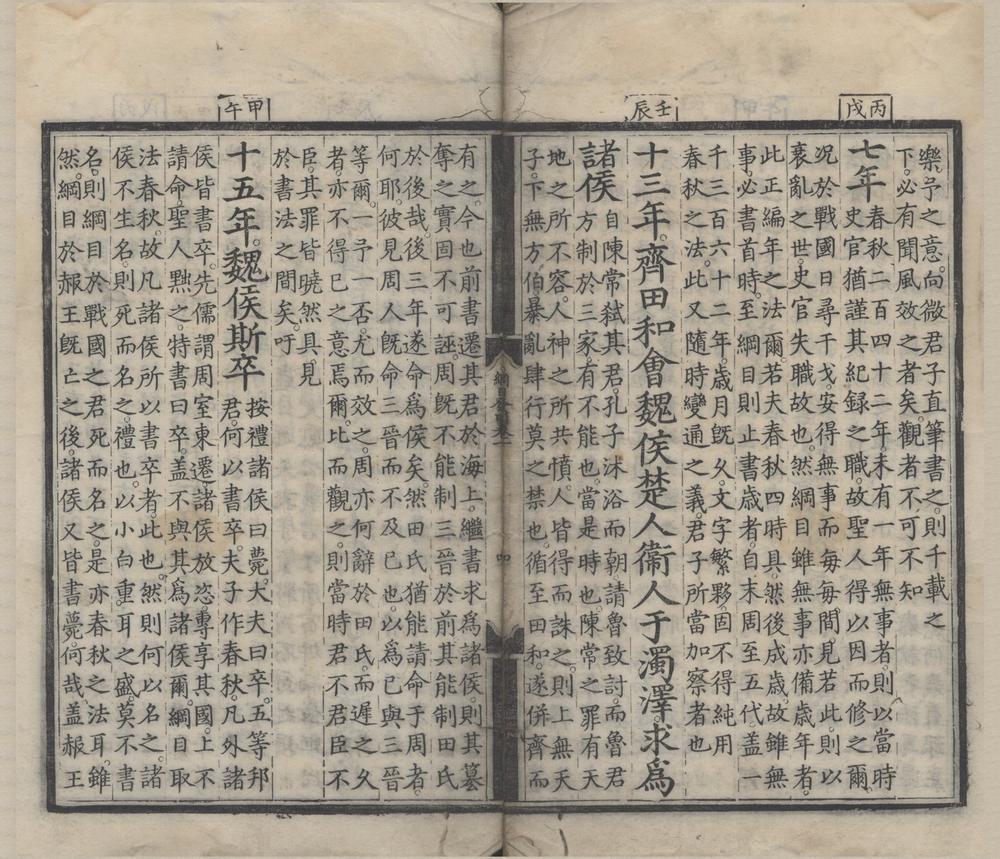 丙戌
樂予之意向微君子直筆書之則千載之
下必有聞風效之者矣觀者不可不知
七年春秋二百四十二年未有一年無事者則以當時
史官猶謹其紀録之職故聖人得以因而修之爾
況於戰國日尋干戈安得無事而每每間見若此則以
衰亂之世史官失職故也然綱目雖無事亦備歲年者
此正編年之法爾若夫春秋四時具然後成歲故雖無
事必書首時至綱目則止書歲者自末周至五代蓋一
千三百六十二年歲月旣久文字繁夥因不得純用
春秋之法此又隨時變通之義君子所當加察者也
壬辰
十三年齊田和會魏侯楚人衞人于濁澤求爲
諸侯自陳常弑其君孔子沐浴而朝請魯致討而魯君
方制於三家有不能也當是時也陳常之罪有天
地之所不容人神之所共憤人皆得而誅之則上無天
子下無方伯暴亂肆行莫之禁也循至田和遂併齊而
綱目
四
有之今也前書遷其君於海上繼書求爲諸侯則其簒
奪之實固不可誣周旣不能制三晉於前其能制田氏
於後哉後三年遂命爲侯矣然田氏猶能請命于周者
何耶彼見周人旣命三晉而不及已也以爲已與三晉
等爾一予一否尤而效之周亦何辭於田氏而遲之久
者亦不得已之意焉爾比而觀之則當時君不君臣不
臣其罪皆曉然具見
於書法之間矣吁
甲午
十五年魏侯斯卒按禮諸侯曰薨大夫曰卒五等邦
君何以書卒夫子作春秋凡外諸
侯皆書卒先儒謂周室東遷諸侯放恣專享其國上不
請命聖人黜之特書曰卒蓋不與其爲諸侯爾綱目取
法春秋故凡諸侯所以書卒者此也然則何以名之諸
侯不生名則死而名之禮也以小白重耳之盛莫不書
名則綱目於戰國之君死而名之是亦春秋之法耳雖
然綱目於赧王旣亡之後諸侯又皆書薨何哉蓋赧王